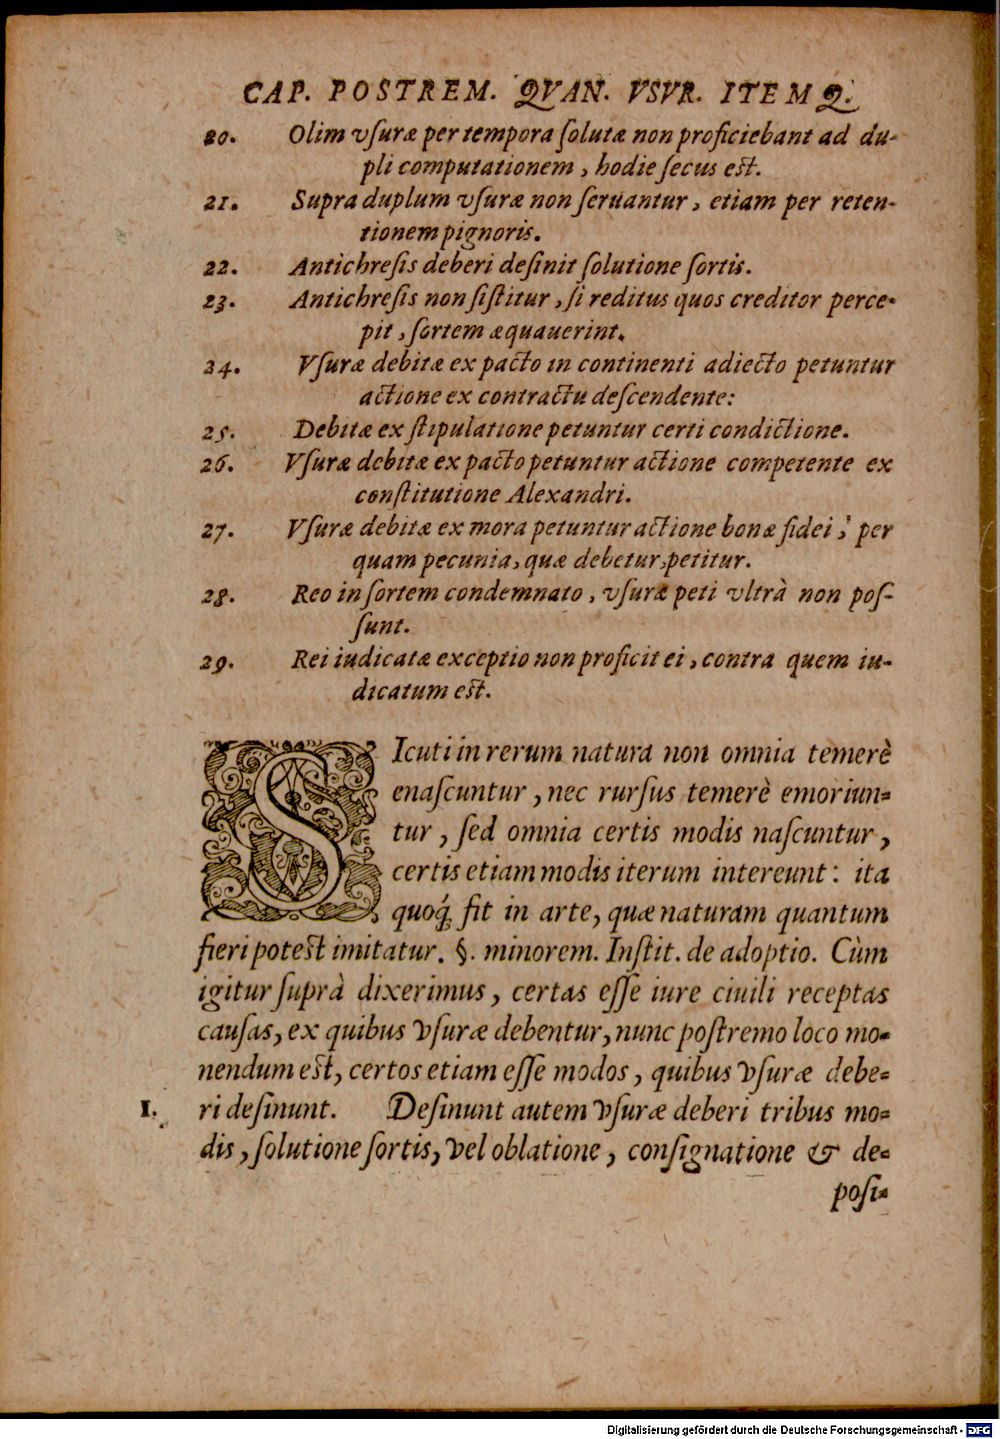 CAP. POSTREM. QVAN. VSVR. ITEM Q.
20. Olim vſuræ per tempora ſolutæ non proficiebant ad du-
pli computationem, hodie ſecus est.
21. Supra duplum vſuræ non ſeruantur, etiam per reten-
tionem pignoris.
22. Antichreſis deberi deſinit ſolutione ſortis.
23. Antichreſis non ſiſtitur, ſi reditus quos creditor perce-
pit, ſortem æquauerint.
24. Vſuræ debitæ ex pacto in continenti adiecto petuntur
actione ex contractu deſcendente:
25. Debitæ ex ſtipulatione petuntur certi condictione.
26. Vſuræ debitæ ex pacto petuntur actione competente ex
conſtitutione Alexandri.
27. Vſuræ debitæ ex mora petuntur actione bonæ fidei, per
quam pecunia, quæ debetur, petitur.
28. Reo in ſortem condemnato, vſuræ peti vltrà non poſ-
ſunt.
29. Rei iudicatæ exceptio non proficit ei, contra quem iu-
dicatum est.
SIcuti in rerum natura non omnia temerè
enaſcuntur, nec rurſus temerè emoriun-
tur, ſed omnia certis modis naſcuntur,
certis etiam modis iterum intereunt: ita
quoq́; fit in arte, quæ naturam quantum
fieri potest imitatur. §. minorem. Inſtit. de adoptio. Cùm
igitur ſuprà dixerimus, certas eſſe iure ciuili receptas
cauſas, ex quibus vſuræ debentur, nunc poſtremo loco mo-
nendum est, certos etiam eſſe modos, quibus vſuræ debe-
1. ri deſinunt. Deſinunt autem vſuræ deberi tribus mo-
dis, ſolutione ſortis, vel oblatione, conſignatione & de-
poſi-
Digitalisierung gefördert durch die Deutsche Forschungsgemeinschaft - DFG